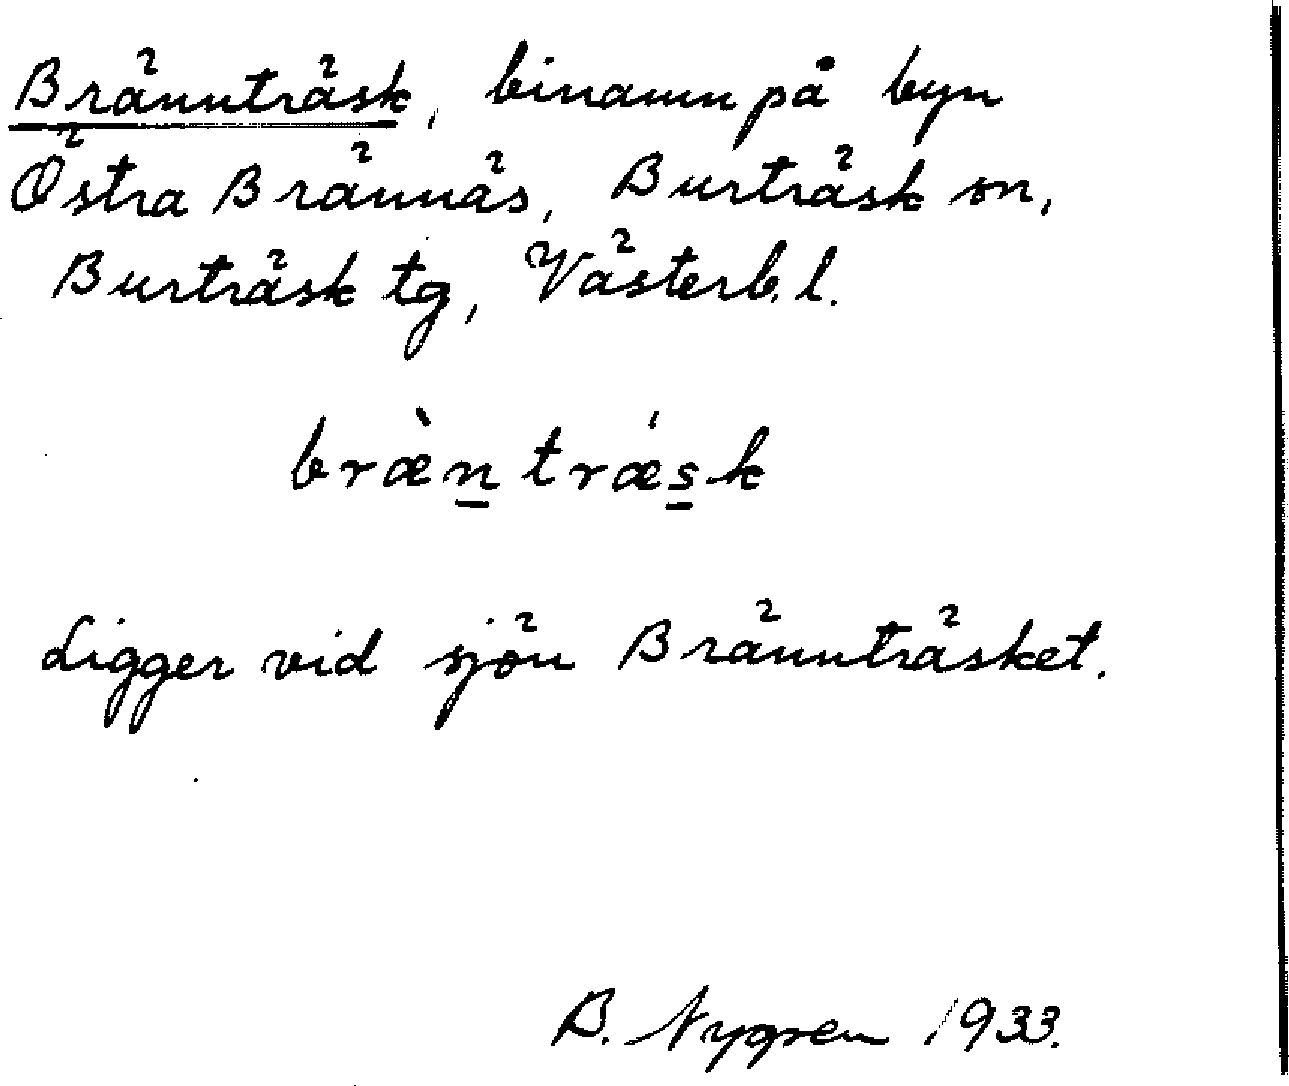 Brännträsk, binamn på byn
Östra Brännäs, Burträsk sn,
Burträsk tg, Västerb. l.
bræ̀n̲trǽs̲k
Ligger vid sjön Brännträsket.
B. Nygren 1933.